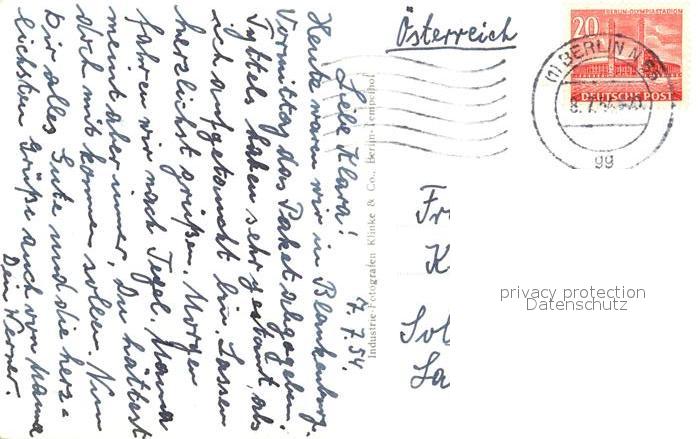 7.7.54.
Liebe Klara!
Heute waren wir in Blankenburg.
Vormittag das Paket abgegeben.
haben sehr gestaunt, als
ich aufgetaucht bin. Lassen
herzlichst grüßen. Morgen
fahren wir nach Tegel. Mama
meint aber immer, Du hättest
doch mit kommen sollen. Nun
Dir alles Gute und die herz=
lichsten Grüße auch von Mama
Dein Werner.
Industrie-Fotografen Klinke & Co., Berlin-Tempelhof
Österreich
BERLIN-OLYMPIASTADION
20
DEUTSCHE POST
(1) BERLIN N
gg
Fr
K
La
privacy protection
Datenschutz